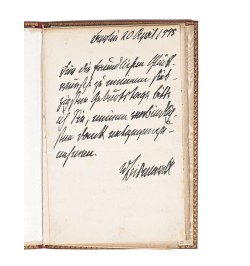 Berlin 20 April 1885
Für die freundlichen Glück-
wünsche zu meinem sieb-
zigsten Geburtstage bitte
ich Sie, meinen verbindlich-
sten Dank entgegenzu-
nehmen.
v Bismarck